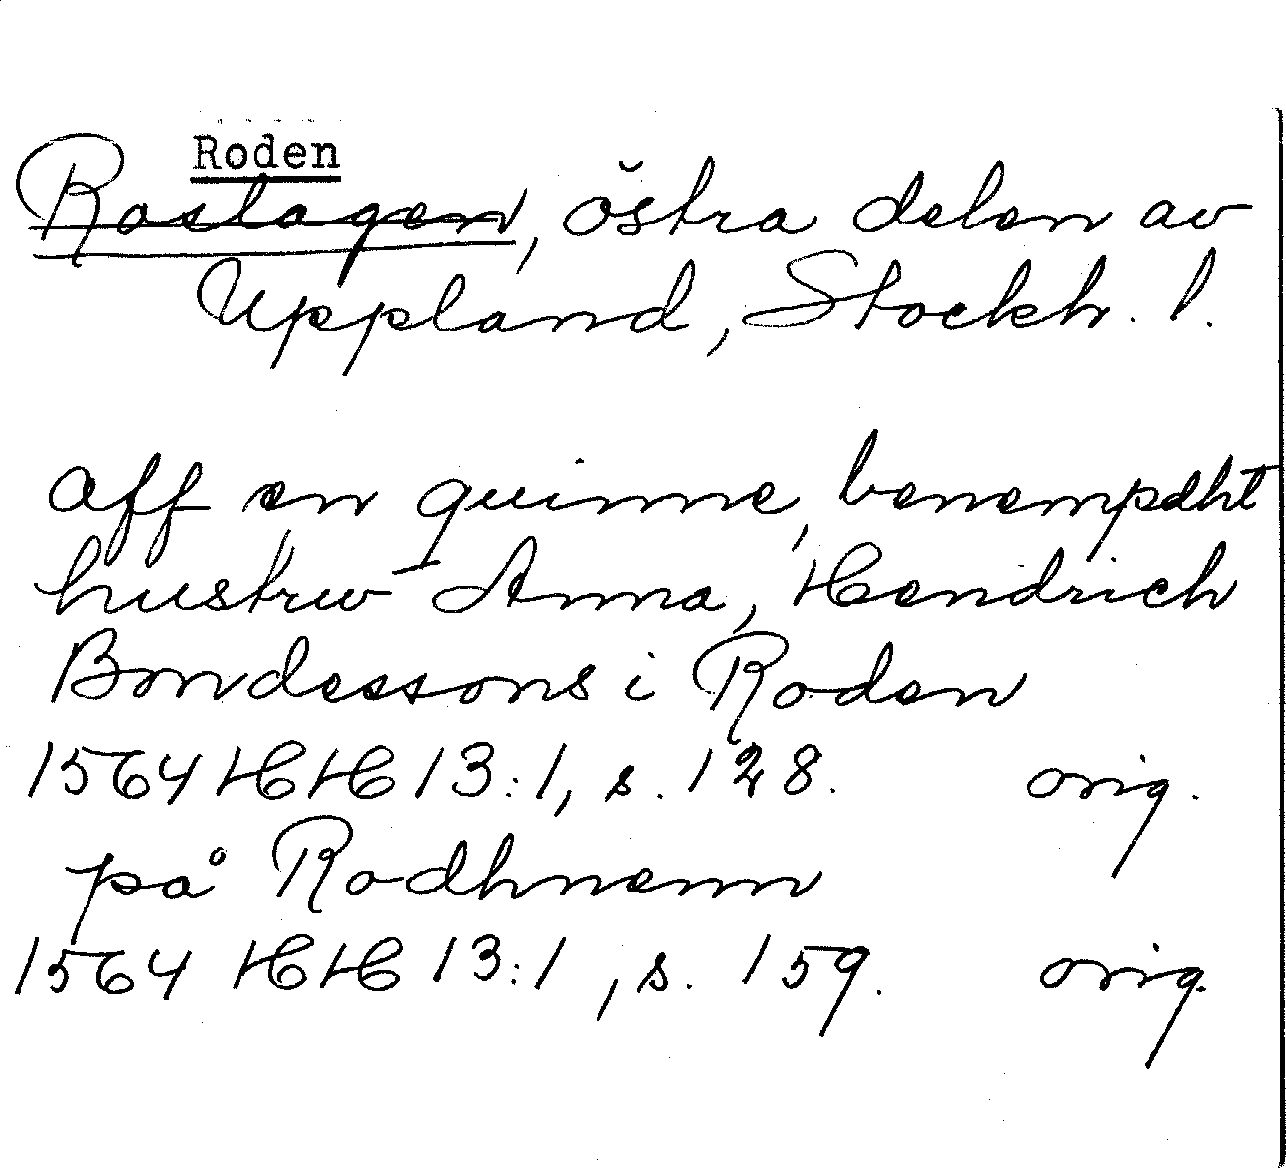 Roden
Roslagen, östra delen av
Uppland, Stockh. l.
aff en quinne, benempdht
hustrw Anna, Hendrich
Bondessons i Roden
1564 HH 13:1, s. 128. orig.
på Rodhnenn
1564 HH 13:1, s. 159. orig.